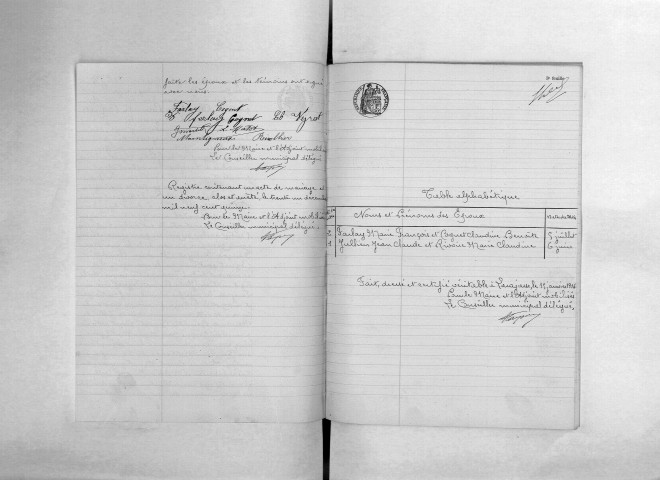 faite les époux et les témoins ont signé
avec nous.
Farlay Cognet
Farlay Cognet Vyrat
Pour le Maire et l'Adjoint mobilisés
Le Conseiller municipal délégué
Registre contenant un acte de mariage et
un divorce, clos et arrêté le trente un décembre
mil neuf cent quinze.
Pour le Maire et l'Adjoint mobilisés
Le Conseiller municipal délégué,
Table alphabétique
Noms et Prénoms des Epoux
2 Farlay Marie François et Cognet Claudine Benoite 3 juillet
1 Jullien Jean Claude et Rivoire Marie Claudine 6 juin
Fait, dressé et certifié véritable à Larajasse, le 15 janvier 1916
Pour le Maire et l'Adjoint mobilisés
Le Conseiller municipal délégué,